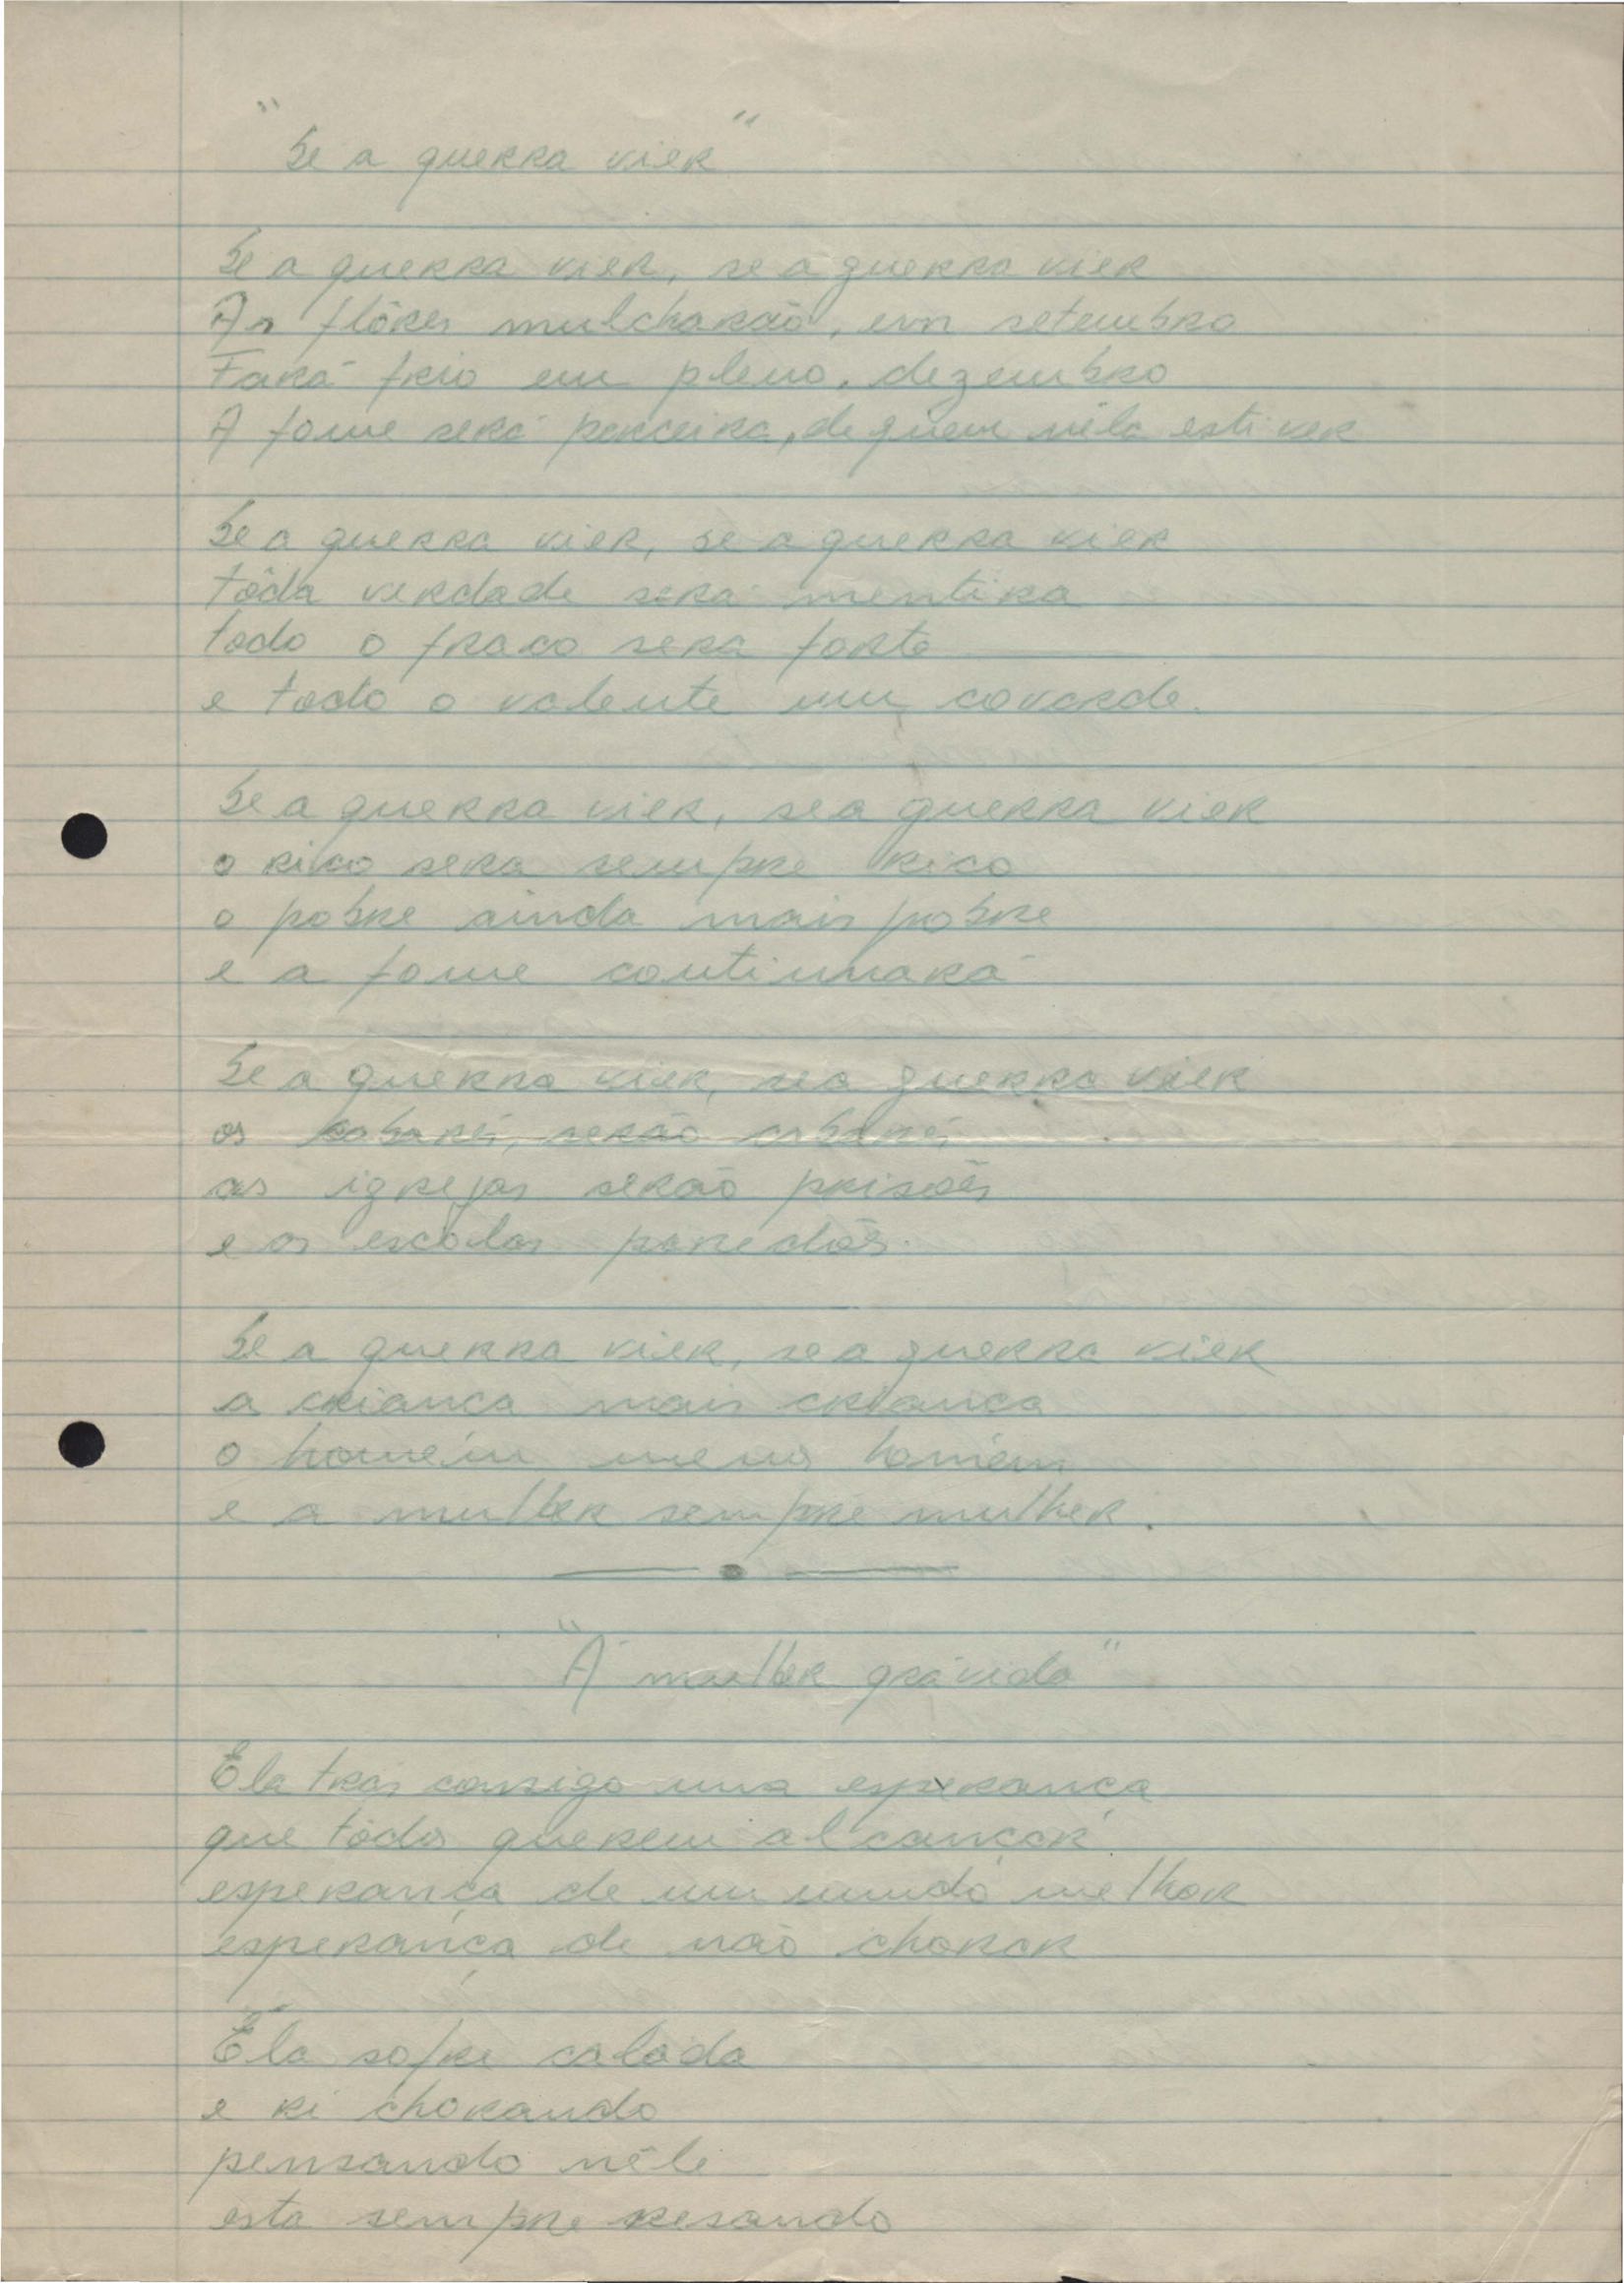 "Se a guerra vier"
Se a guerra vier, se a guerra vier
As flôres mulcharão, em setembro
Fará frio em pleno, dezembro
A fome será perceira, de quem nela estiver
Se a guerra vier, se a guerra vier
tôda verdade sera mentira
todo o fraco sera forte
e todo o valente um covarde.
Se a guerra vier, se a guerra vier
o rico sera sempre rico
o pobre ainda mais pobre
e a fome continuará
Se a guerra vier, se a guerra vier
os serão
as igrejas serão prisões
e as escolas paredões.
Se a guerra vier, se a guerra vier
a crianca mais crianca
o homem menos homem
e a mulher sempre mulher.
"A mulher grávida"
Ela tras consigo uma esperanca
que todos querem alcançar
esperança de um mundo melhor
esperança de não chorar
Ela sofre calada
e ri chorando
pensando nêle
esta sempre resando